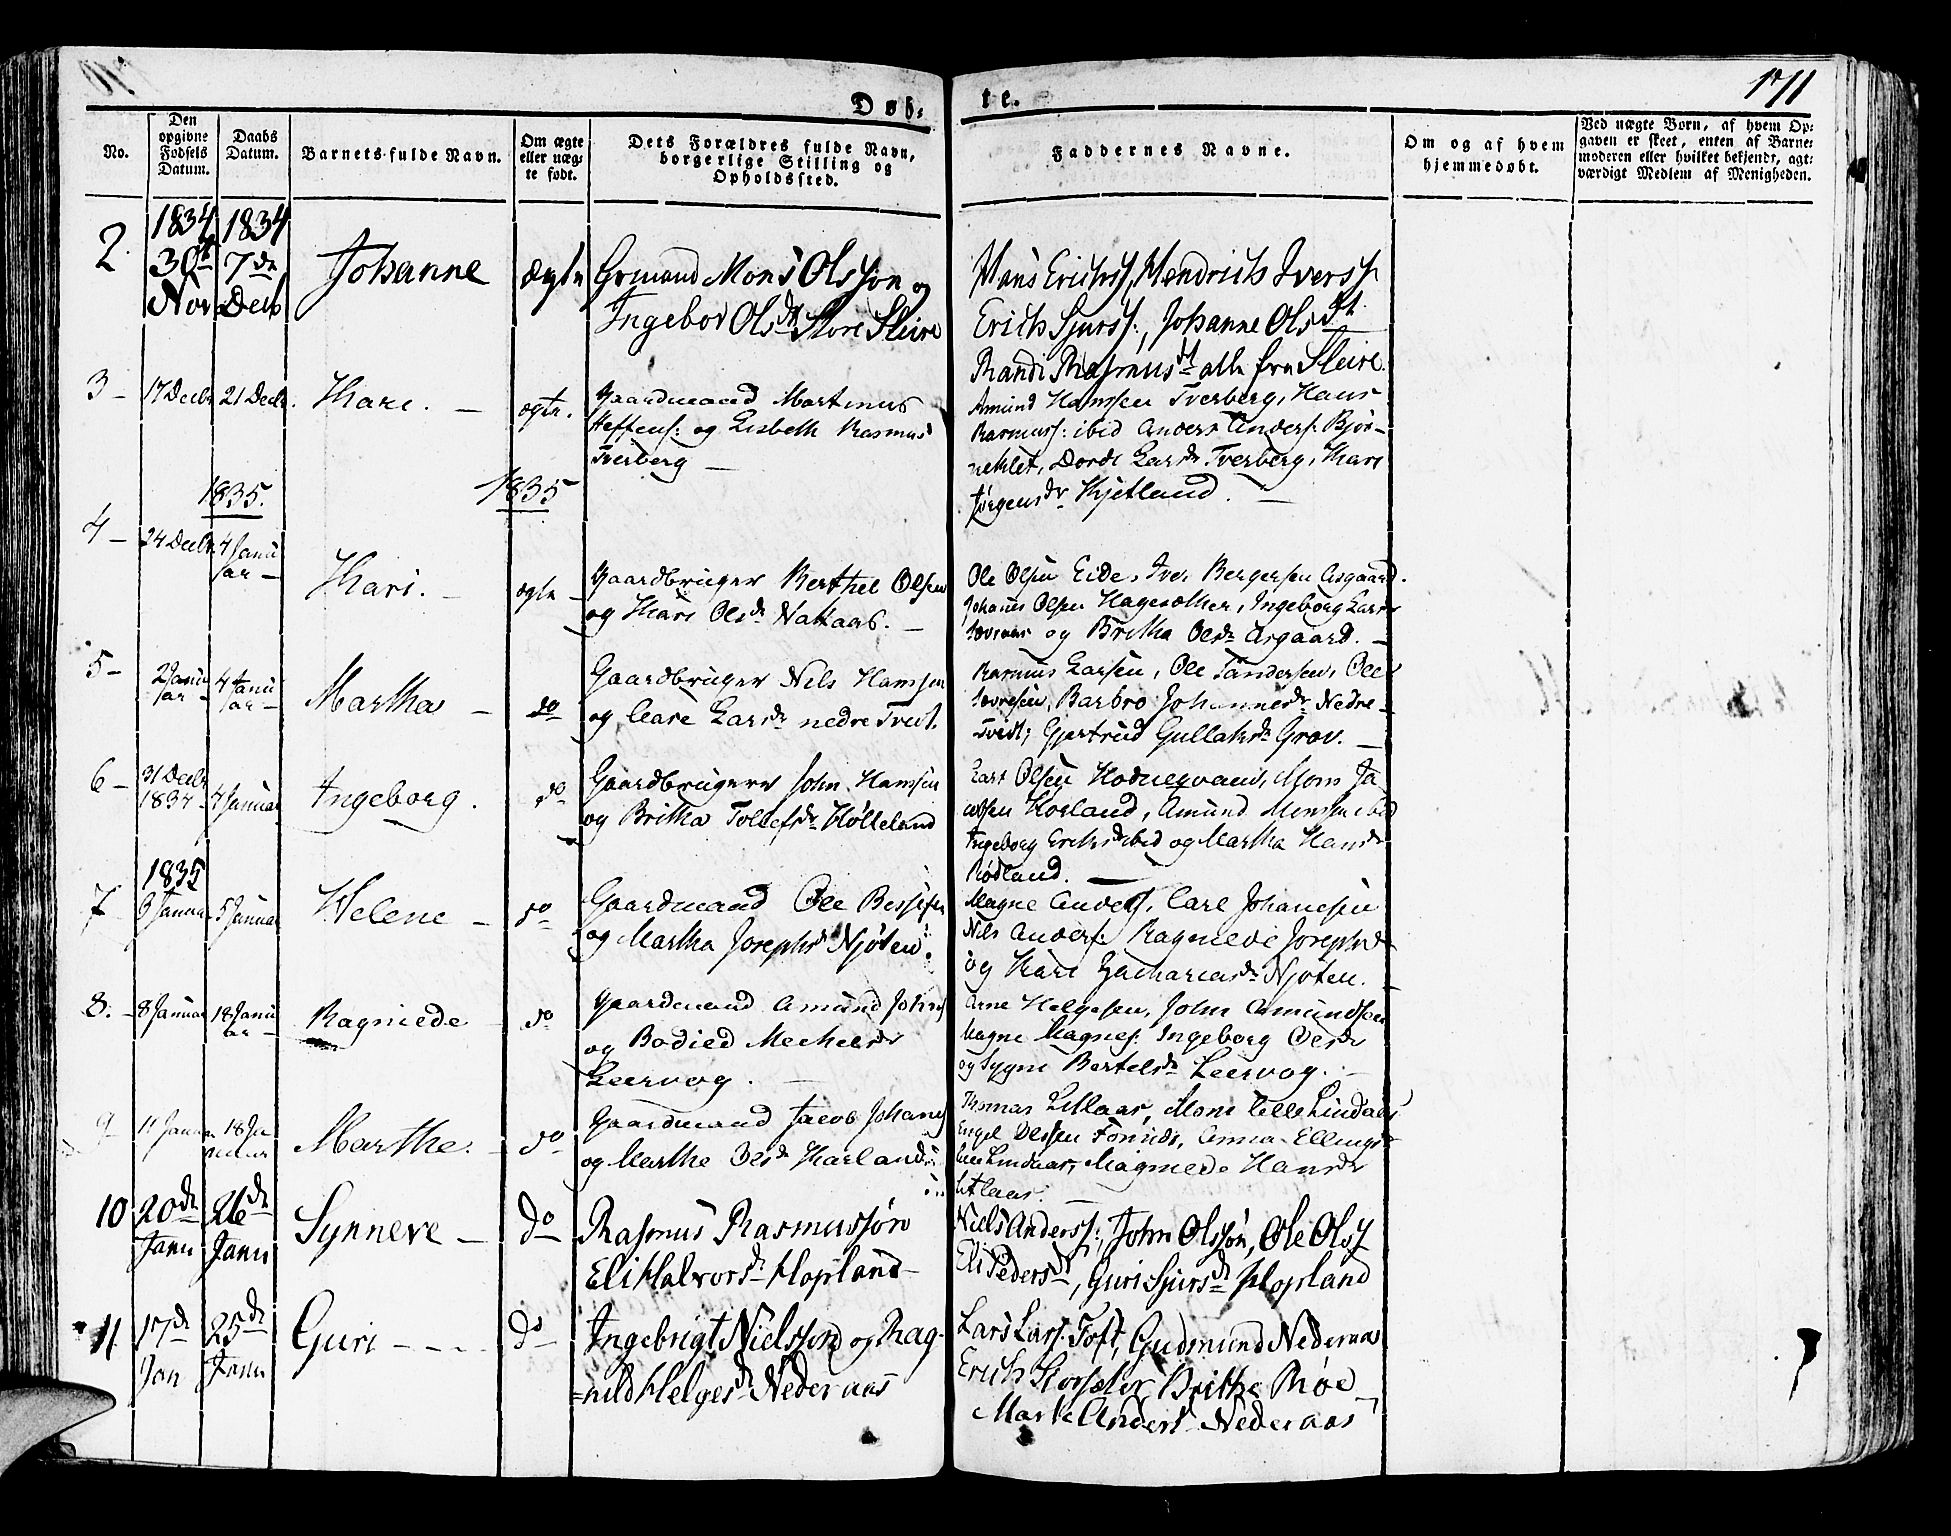 171
Døb:
te.
No.
Den opgivne Fødsels Datum.
Daabs Datum.
Barnets fulde Navn.
Om ægte eller uæg- te født.
Dets Forældres fulde Navn, borgerlige Stilling og Opholdssted.
Faddernes Navne.
Om og af hvem hjemmedøbt.
Ved uægte Børn, af hvem Op: gaven er skeet, enten af Barne: moderen eller hvilket bekjendt, agt: værdigt Medlem af Menigheden.
1834 1834
2. 30te Nov 7de Decb Johanne ægte Grmand Mons Olssøn og
Ingebor Olsdt Store Sleire
Hans Erichss, Hendrich Iverss
Erich Sjurss:, Johanne Olsdt
Randi Rasmusdt alle fra Sleire.
3 - 17 Decbr 21 Decbr. Kari. - ægte. Gaardmand Martinus
Steffens: og Lisbeth Rasmus
Tverberg -
Amund Hanssen Tverberg, Hans
Rasmuss: ibid Anders Anders: Bjør-
neklet, Dorde Larsdr Tverberg, Kari
Jørgensdr Kjetland. -
1835. 1835
4 - 24 Decbr 4 Janu ar - Kari. - ægte - Gaardbruger Berthel Olsen
og Kari Olsdr Nataas. -
Ole Olsen Eide, Iver Bergersen Asgaard.
Johanes Olsen Hagesæther, Ingeborg Larsdr
og Britha Olsdr Asgaard. -
5 - 2 Janu ar - 4 Janu ar - Martha - do Gaardbruger Nils Hanssen
og Kari Larsdr nedre Tvedt.
Rasmus Larsen, Ole Tandersen, Ole
Barbro Johannesdr Nedre -
Tvedt, Gjertrud Gullaksdr Grov. -
6 - 31 Decbr 1834 - 4 Januar Ingeborg. do Gaardbruger John Hanssen
og Britha Tollefsdr Høileland
Lars Olsen Hodnesvand, Mons Ja
cobsen Hosland, Amund Monsen ibid
Ingeborg Eriksdr ibid og Martha Hansdr
Rødland. -
1835
7 3 Januar 5 Januar Helene - do Gaardmand Ole Bessesen
og Martha Josephsdr Njøten.
Magne Anders, Carl Johanesen
Nils Anders: Ragnilde Josephsdr
og Kari Zachariasdr Njøten. -
8. - 8 Januar 18 Janu ar - Ragnilde - do Gaardmand Amund Johns
og Bodied Michelsdr
Leervog. -
Arne Helgesen, John Amundsen
Magne Magnes: Ingeborg Olsdr
og Sygni Bertelsdr Leervog. -
9 - 11 Januar 18 Ja nuar Marthe. - do Gaardmand Jacob Johans
og Marthe Olsdr Harland
Thomas Litlaas, Mons Lille Lindaas
Engel Olssen Fonnes, Anna Ellingsdr
Lille Lindaas, Magnilde Hansdr
Litlaas. -
10 20de Janu 26de Janu Synneve - do Rasmus Rasmussøn
Eli Halvorsdt Hopland -
Niels Anderss:, John Olssøn, Ole Olss
Eli Pedersdt, Guri Sjursdt Hopland
11 17de Jan 25de Janu Guri - - - - do Ingebrigt Nielssøn og Rag-
=nild Helgesdt Nederaas
Lars Lars: Toft, Gudmund Nederaas
Erich Storsæter, Brithe Røe
Marte Andersd Nederaas